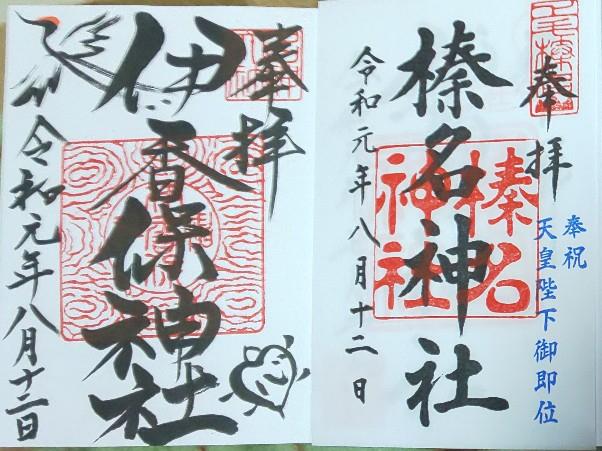 奉拝
榛名神社
令和元年八月十二日
奉祝
天皇陛下御即位
榛名
神社
奉拝
伊香保神社
令和元年八月十二日